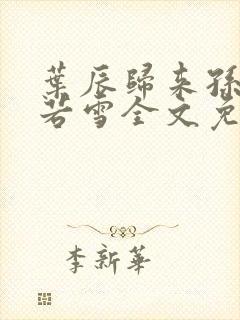 葉辰歸来孫
若雪全文免
李新華